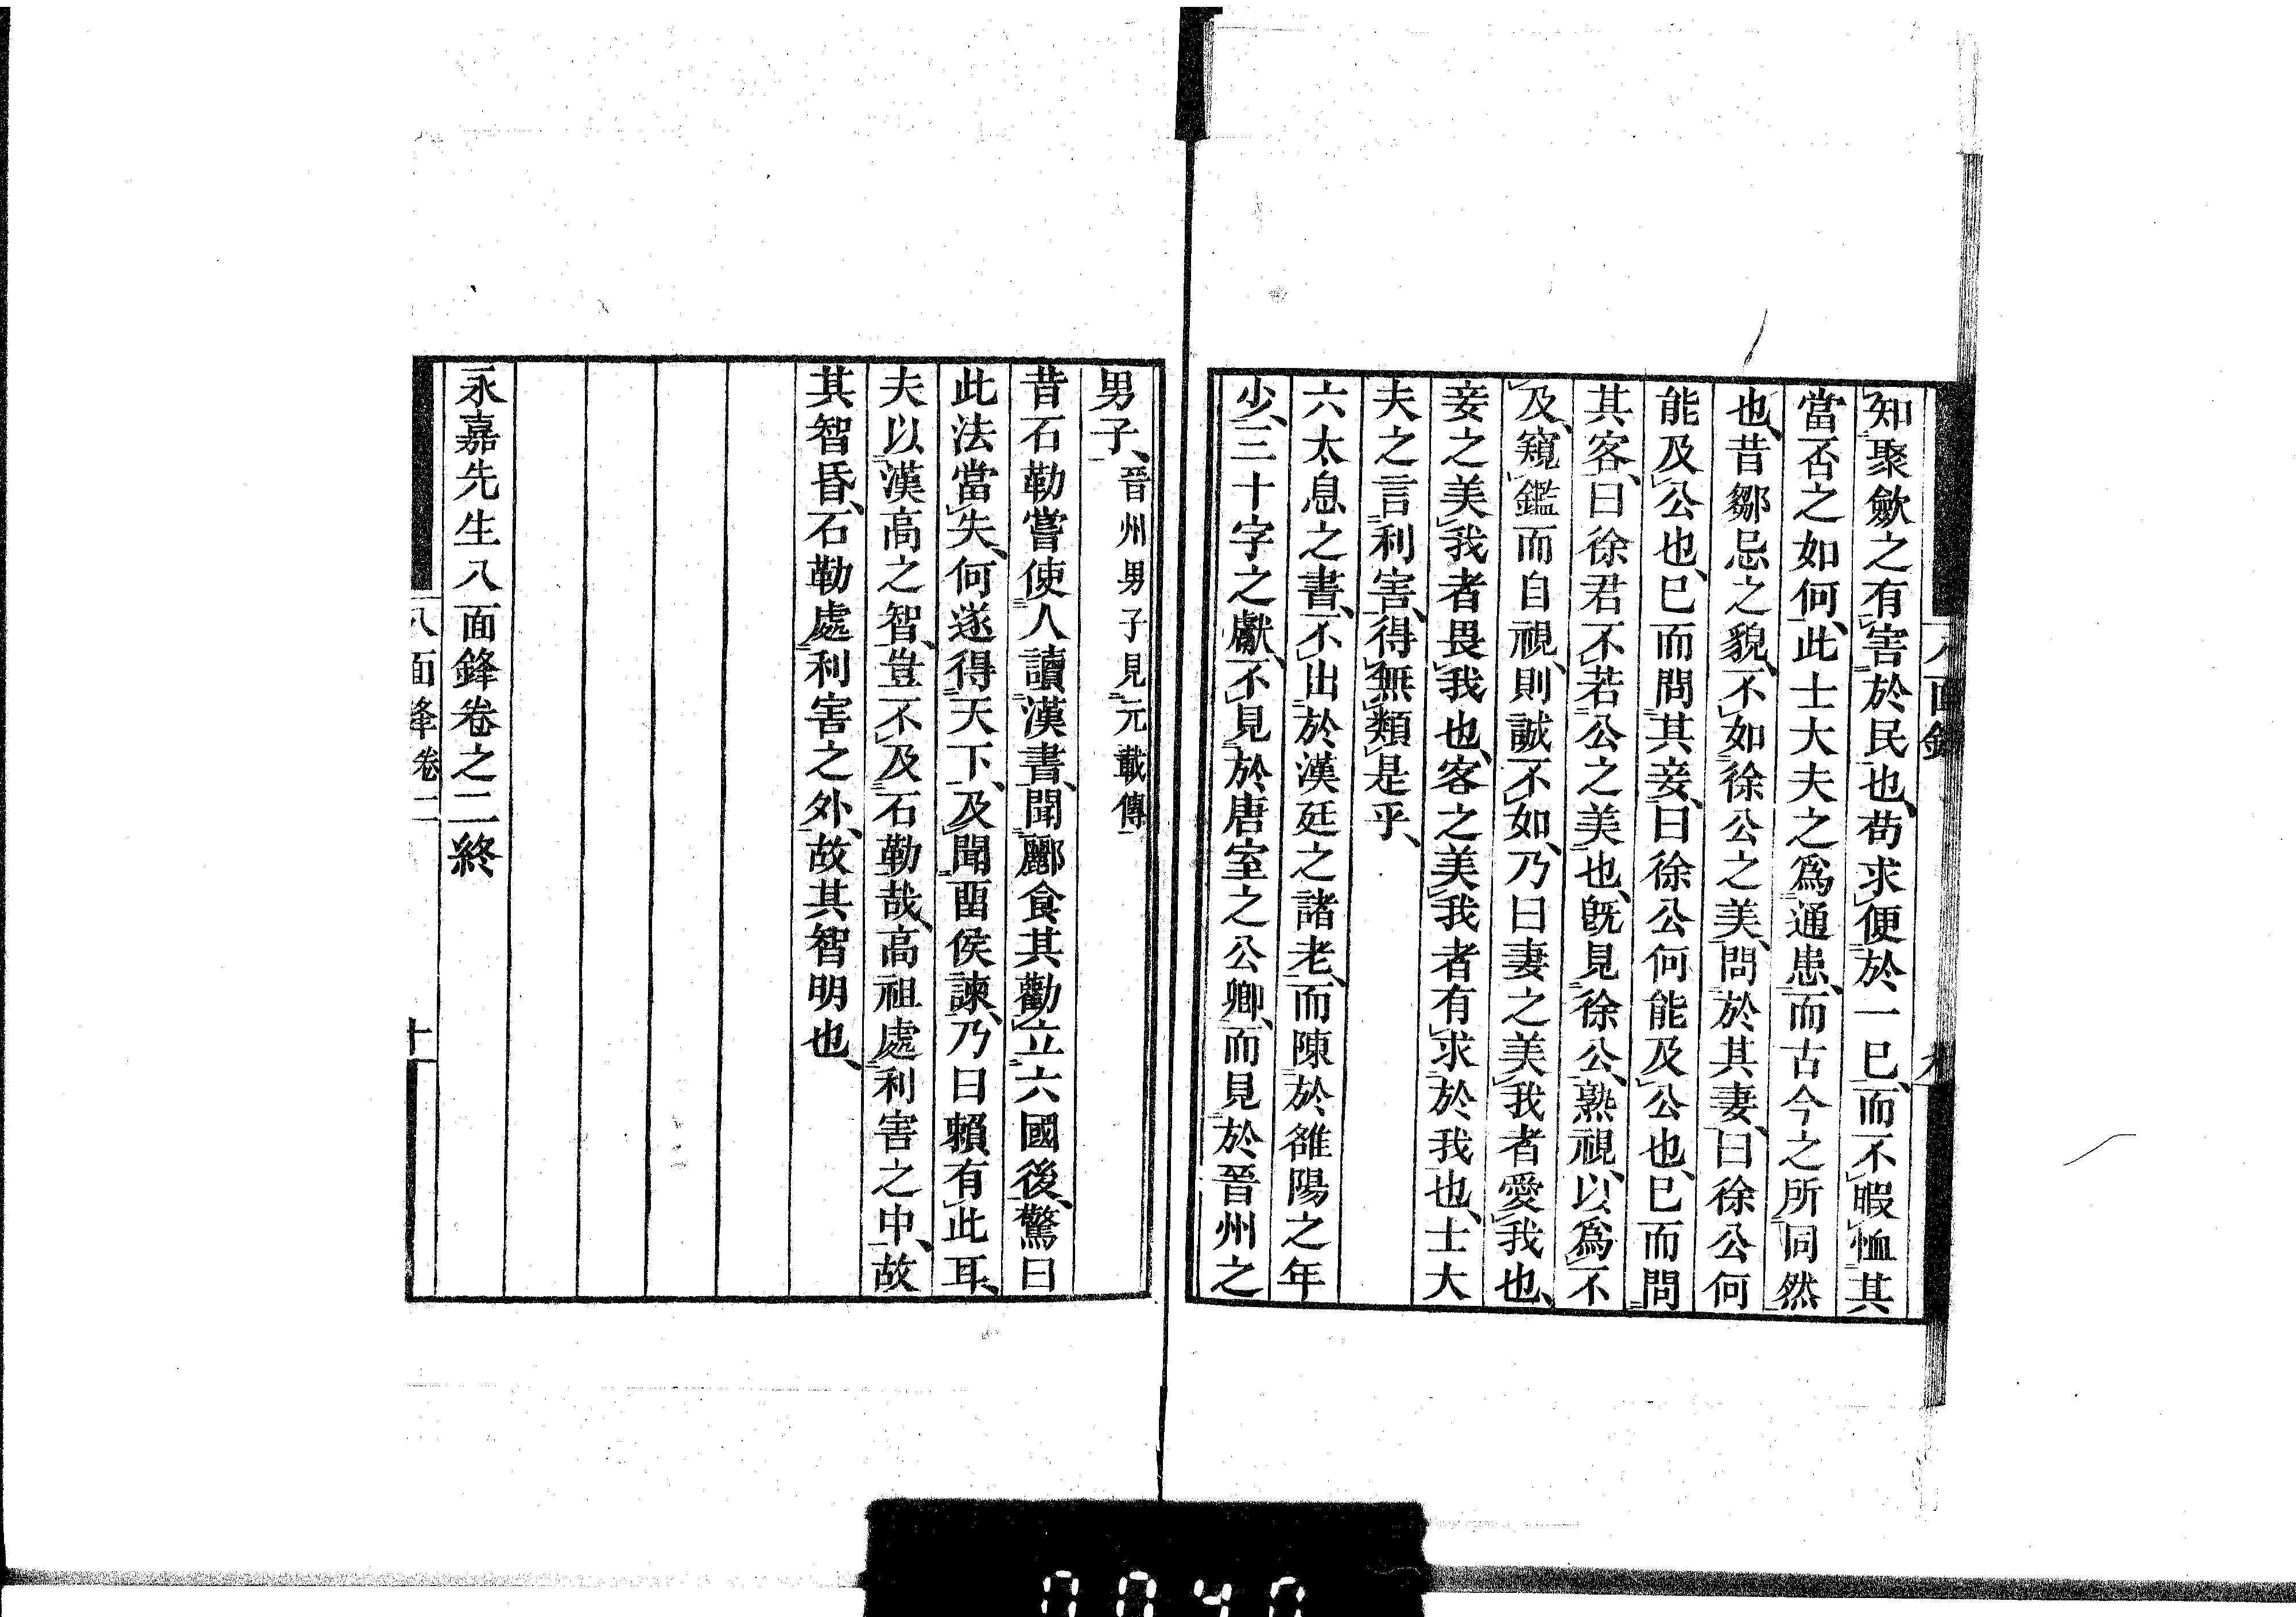 知聚歛之有害於民也、苟求便於一已、而不暇恤其
當否之如何、此士大夫之爲通患、而古今之所同然
也、昔鄒忌之貌、不如徐公之美、問於其妻、曰徐公何
能及公也、已而問其妾、曰徐公何能及公也、已而問
其客、曰徐君不若公之美也、旣見徐公、熟視、以爲不
及、窺鑑而自視、則誠不如、乃曰妻之美我者愛我也、
妾之美我者畏我也、客之美我者有求於我也、士大
夫之言利害、得無類是乎、
六太息之書、不出於漢廷之諸老、而陳於雒陽之年
少、三十字之獻、不見於唐室之公卿、而見於晉州之
男子、晉州男子見元載傳
昔石勒嘗使人讀漢書、聞酈食其勸立六國後、驚曰
此法當失、何遂得天下、及聞畱侯諫、乃曰賴有此耳、
夫以漢高之智、豈不及石勒哉、高祖處利害之中、故
其智昏、石勒處利害之外、故其智明也、
永嘉先生八面鋒卷之二終
八面鋒 卷二
十
0040